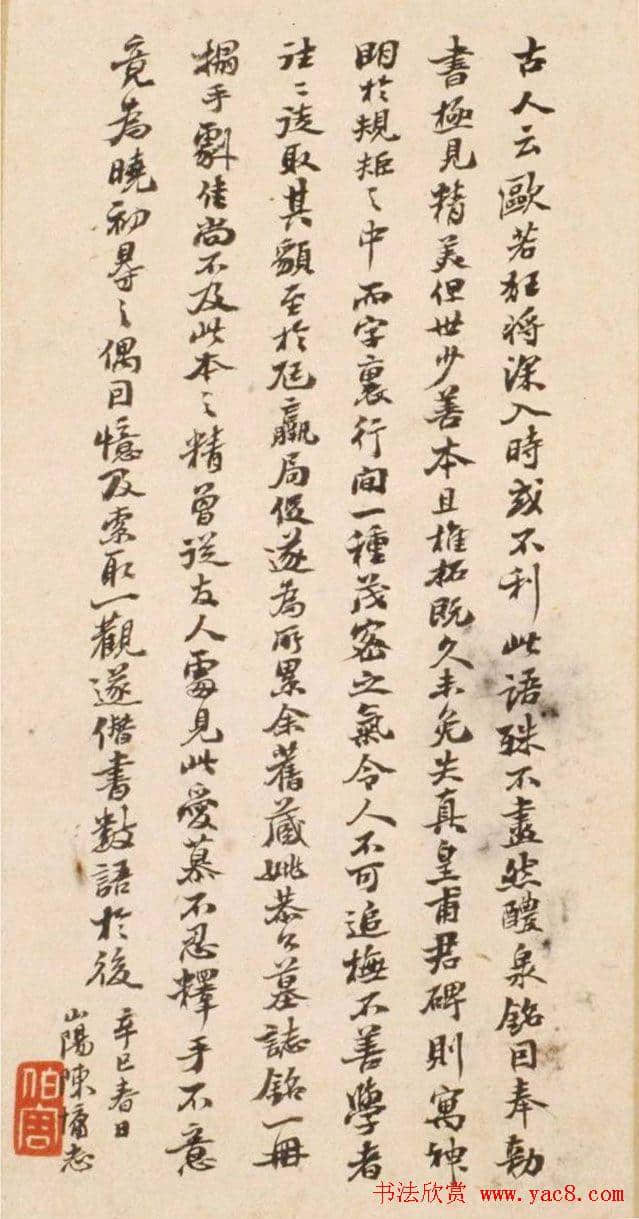 古人云歐若狂將深入時或不利此語殊不盡然醴泉銘因奉勅
書極見精美但世少善本且椎拓既久未免失真皇甫君碑則寓神
明於規矩之中而字裏行間一種茂密之氣令人不可追橅不善學者
往往徒取其貌至於尫羸局促遂為所累余舊藏姚恭公墓誌銘一冊
搨手劇佳尚不及此本之精曾從友人處見此愛慕不忍釋手不意
竟為曉初得之偶回憶及索取一觀遂僭書數語於後
辛巳春日
山陽陳墉志
書法欣赏 www.yac8.com